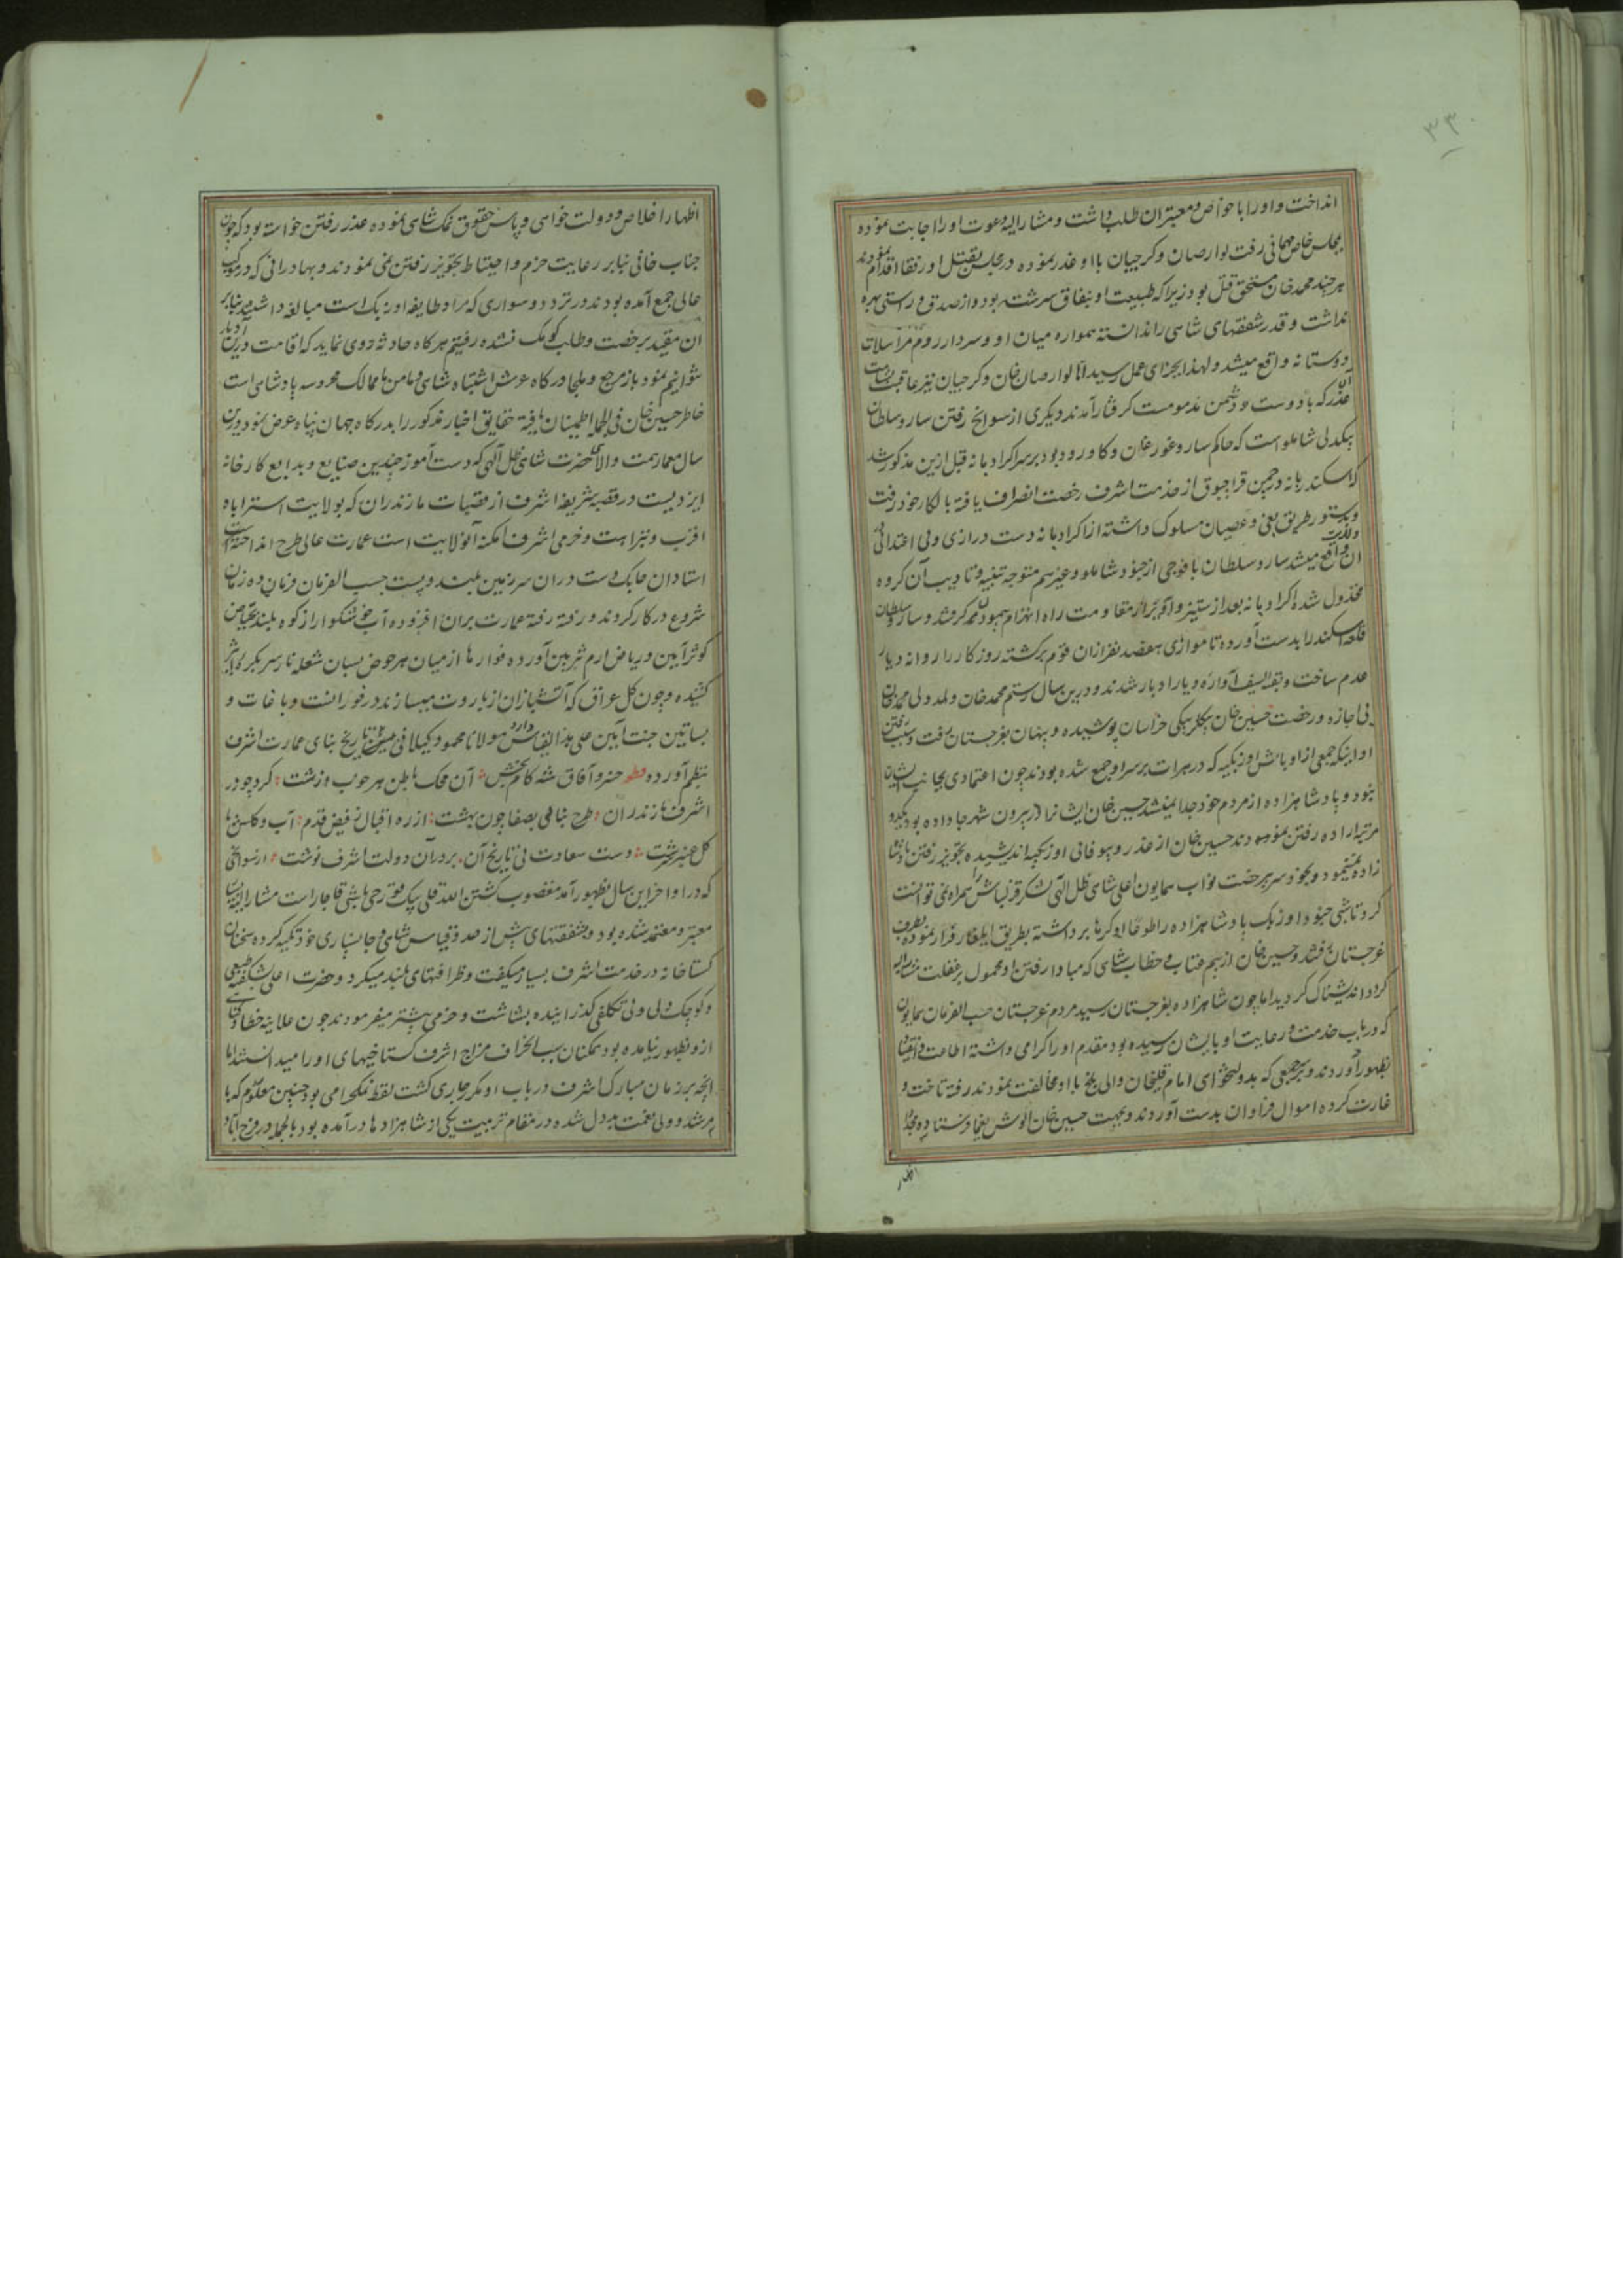 ۳۳۰
انداخت و او را با خواص و معتبران طلب داشت و مشار الیه دعوت او را اجابت نموده
بمجلس خاص مهمانی رفت لوارصان و کرجیان با او غدر نموده در مجلس بقتل او و رفقا اقدام نمودند
هر چند محمد خان مستحق قتل بود زیرا که طبیعت او بنفاق سرشته بود و از صدق و راستی بهره
نداشت و قدر شفقتهای شاهی را ندانسته همواره میان او و سردار روم مراسلات
دوستانه واقع میشد و لهذا بجزای عمل رسید اما لوارصان خان و کرجیان نیز عاقبت بشامت
غدر که با دوست و دشمن مذمومست کرفتار آمدند دیکری از سوانح رفتن سارو سلطان
بیکدلی شاملو است که حاکم سارو غورغان و کاورود بود بر سر اکراد بانه قبل ازین مذکور شد
که اسکندر بانه در چمن قراچبوق از خدمت اشرف رخصت انصراف یافته بالکار خود رفت
و بدستور طریق بغی و عصیان مسلوک داشته از اکراد بانه دست درازی و بی اعتدالی
واقع میشد سارو سلطان با فوجی از جنود شاملو و غیرهم متوجه تنبیه و تادیب آن کروه
مخذول شده اکراد بانه بعد از ستیز و آویز از مقاومت راه انهزام پیمودند و سارو سلطان
قلعه اسکندر را بدست آورده تا موازی هفتصد نفر ازان قوم برکشته روزکار را روانه دیار
عدم ساخت و بقیة السیف آواره دیار ادبار شدند و درین سال رستم محمد خان ولد ولی محمد خان
بی اجازه و رخصت حسین خان بیکلربیکی خراسان پوشیده و پنهان بغرجستان رفت و سبب رفتن
او اینکه جمعی از اوباش اوزبکیه که در هرات بر سر او جمع شده بودند چون اعتمادی بجانب ایشان
نبود و پادشاهزاده از مردم خود جدا نمیشد حسین خان ایشانرا در بیرون شهر جا داده بود یکدو
مرتبه اراده رفتن نموده بودند حسین خان از غدر و بیوفائی اوزبکیه اندیشیده تجویز رفتن پادشا
زاده نمینمود و بیجود سر برخصت نواب همایون اعلی شاهی ظل الهی لشکر قزلباش را همراه نمی توانست
کرد تا شبی جنود اوزبک پادشاهزاده را طوعا او کرها برداشته بطریق ایلغار فرار نموده بطرف
غرجستان رفتند و حسین خان از بیم عتاب و خطاب شاهی که مبادا رفتن او محمول بر غفلت مشار الیه
کردد اندیشناک کردید اما چون شاهزاده بغرجستان رسید مردم غرجستان حسب الفرمان همایون
که در باب خدمت و رعایت او بایشان رسیده بود مقدم او را کرامی داشته اطاعت و انقیاد
بظهور آوردند و بر جمعی که بدولتخواهی امام قلیخان والی بلخ با او مخالفت نمودند رفته تاخت و
غارت کرده اموال فراوان بدست آوردند و بجهت حسین خان الوش یغما فرستاده مجددا
اظهار
اظهار اخلاص و دولت خواهی و پاس حقوق نمک شاهی نموده عذر رفتن خواسته بود که چون
جناب خانی بنابر رعایت حزم و احتیاط تجویز رفتن نمی نمودند و بهادرانی که در موکب
عالی جمع آمده بودند در تردد و سواری که مراد طایفه اوزبک است مبالغه داشتند بنابر
ان مقید برخصت و طلب کومک نشده رفتیم هر کاه حادثه روی نماید که اقامت درین دیار
نتوانیم نمود باز مرجع و ملجا درکاه عرش اشتباه شاهی و مامن ما ممالک محروسه پادشاهی است
خاطر حسین خان فی الجمله اطمینان یافته حقایق اخبار مذکور را بدرکاه جهان پناه عرض نمود درین
سال معمار همت والای حضرت شاهی ظل الهی که دست آموز چندین صنایع و بدایع کارخانه
ایزدیست در قصبه شریفه اشرف از قصبات مازندران که بولایت استراباد
اقرب و بنزاهت و خرمی اشرف امکنه آن ولایت است عمارت عالی طرح انداخته است
استادان چابک دست دران سرزمین بلند و پست حسب الفرمان فرمان ده زمان
شروع در کار کردند و رفته رفته عمارت بران افزوده آب خوشکوار از کوه بلند بحیاض
کوثر آیین و ریاض ارم تزیین آورده فوارها از میان هر حوض بسان شعله نار سر بکره اثیر
کشیده و چون کل عراق که آتشبازان از باروت میسازند در فوران است و باغات و
بساتین جنت آیین علی هذا القیاس دارد مولانا محمود کیلانی تاریخ بنای عمارت اشرف
بنظم آورده قطعه خسرو آفاق شه کام بخش آن محک باطن هر خوب و زشت کرد چو در
اشرف مازندران طرح بنائی بصفا چون بهشت از ره اقبال ز فیض قدم آب و کلش با
کل عنبر سرشت دست سعادت پی تاریخ آن بر در آن دولت اشرف نوشت از سوانحی
که در اواخر این سال بظهور آمد مغضوب کشتن الله قلی بیک قورچی باشی قاجار است مشار الیه
معتبر و معتمد شده بود و بشفقتهای بیش از حد و قیاس شاهی و جانسپاری خود تکیه کرده سخنان
کستاخانه در خدمت اشرف بسیار میکفت و ظرافتهای بلند میکرد و حضرت اعلی بشکفته طبعی
و کوچک دلی و بی تکلفی کذرانیده بشاشت و خرمی بیشتر میفرمودند چون علانیه خطا و خیانتی
ازو بظهور نیامده بود همکنان سبب انحراف مزاج اشرف کستاخیهای او را میدانستند اما
آنچه بر زمان مبارک اشرف در باب او مکرر جاری کشت لفظ نمکحرامی بود چنین معلوم که با
مرشد و ولی نعمت بد دل شده در مقام تربیت یکی از شاهزادها درآمده بود بالجمله در فرح آباد